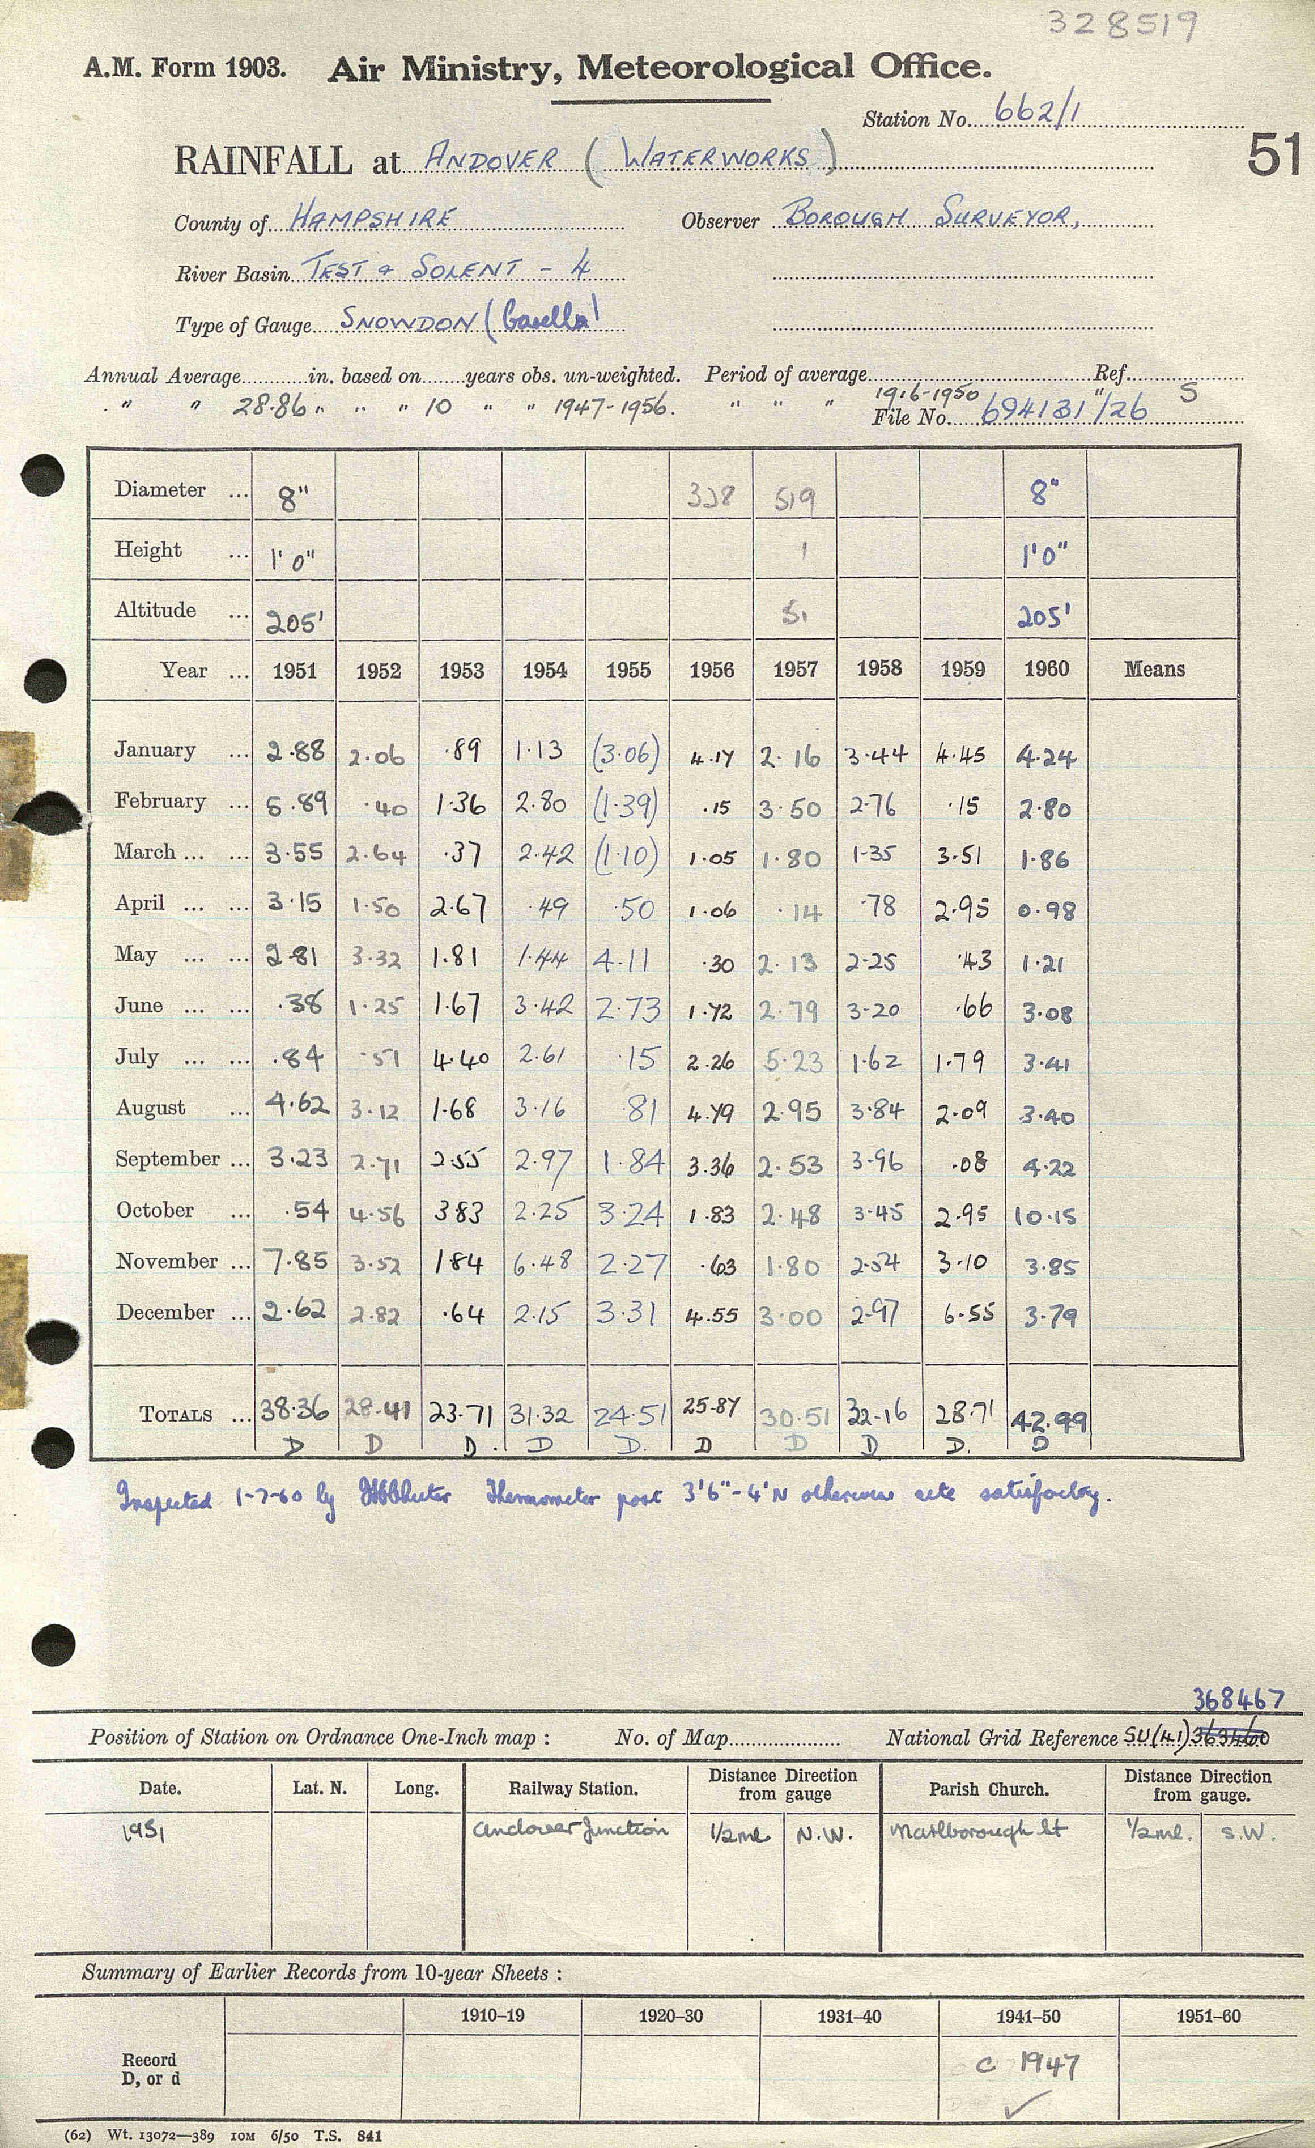 328519
A.M. Form 1903. Air Ministry, Meteorological Office.
Station No. 662/1
RAINFALL at ANDOVER (WATERWORKS) 51
County of HAMPSHIRE Observer BOROUGH SURVEYOR,
River Basin TEST & SOLENT - 4
Type of Gauge SNOWDON (Casella)
Annual Average............in. based on.......years obs. un-weighted. Period of average................Ref................
" " 28.86 " " " 10 " " 1947-1956. " " " 1916-1950 " S
File No. 694131/26
Diameter ... 8" 328 519 8"
Height ... 1'0" 1 1'0"
Altitude ... 205' 51 205'
Year ... 1951 1952 1953 1954 1955 1956 1957 1958 1959 1960 Means
January ... 2.88 2.06 .89 1.13 (3.06) 4.17 2.16 3.44 4.45 4.24
February ... 5.89 .40 1.36 2.80 (1.39) .15 3.50 2.76 .15 2.80
March ... ... 3.55 2.64 .37 2.42 (1.10) 1.05 1.80 1.35 3.51 1.86
April ... ... 3.15 1.50 2.67 .49 .50 1.06 .14 .78 2.95 0.98
May ... ... 2.81 3.32 1.81 1.44 4.11 .30 2.13 2.25 .43 1.21
June ... ... .38 1.25 1.67 3.42 2.73 1.72 2.79 3.20 .66 3.08
July ... ... .84 .51 4.40 2.61 .15 2.26 5.23 1.62 1.79 3.41
August ... 4.62 3.12 1.68 3.16 .81 4.79 2.95 3.84 2.09 3.40
September ... 3.23 2.71 2.55 2.97 1.84 3.36 2.53 3.96 .08 4.22
October ... .54 4.56 3.83 2.25 3.24 1.83 2.48 3.45 2.95 10.15
November ... 7.85 3.52 1.84 6.48 2.27 .63 1.80 2.54 3.10 3.85
December ... 2.62 2.82 .64 2.15 3.31 4.55 3.00 2.97 6.55 3.79
TOTALS ... 38.36 28.41 23.71 31.32 24.51 25.87 30.51 32.16 28.71 42.99
D D D. D D. D D D D. D
Inspected 1-7-60 by Thermometer post 3'6"-4'N otherwise site satisfactory.
368467
Position of Station on Ordnance One-Inch map : No. of Map.................... National Grid Reference SU(41) 363460
Date. Lat. N. Long. Railway Station. Distance from gauge Direction Parish Church. Distance from gauge. Direction
1951 Andover Junction 1/2 ml. N.W. Marlborough St 1/2 ml. S.W.
Summary of Earlier Records from 10-year Sheets :
1910–19 1920–30 1931–40 1941–50 1951–60
Record D, or d C 1947
(62) Wt. 13072—389 10M 6/50 T.S. 841